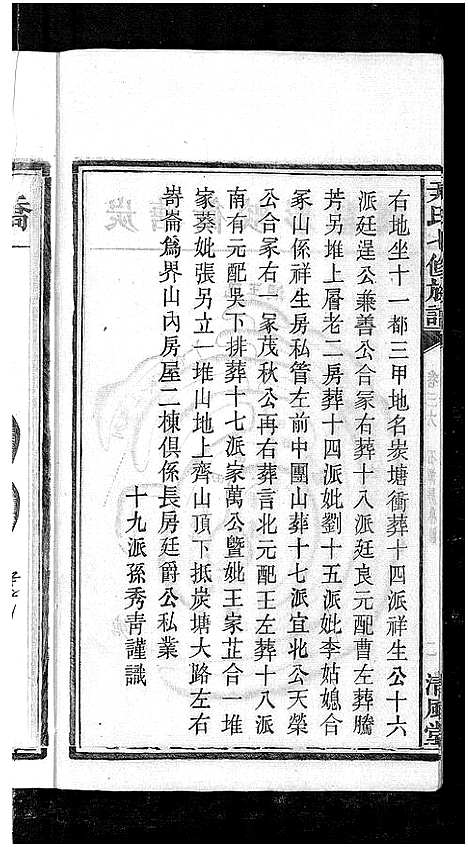 氏七修族譜
清風堂
右地坐十一都三甲地名炭塘衝葬十四派祥生公十六
派廷逞公兼善公合冢右葬十八派廷良元配曹左葬騰
芳另堆上層老二房葬十四派妣劉十五派妣李姑媳合
冢山係祥生房私管左前中團山葬十七派宜北公天榮
公合冢右一冢茂秋公再右葬言北元配王左葬十八派
南有元配吳下排葬十七派家萬公暨妣王家茳合一堆
家葵妣張另立一堆山地上齊山頂下抵炭塘大路左右
嵜崙爲界山內房屋二棟俱係長房廷爵公私業
十九派孫秀青謹識